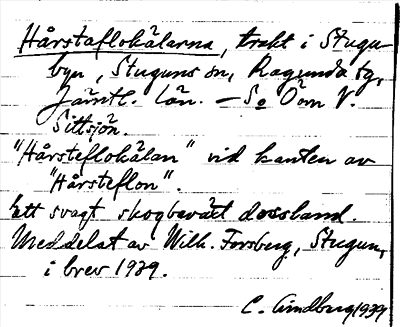 Hårstaflokälarna, trakt i Stugu-
byn, Stuguns sn, Ragunda tg,
Jämtl. län. — So Öom V.
Sittsjön.
"Hårsteflokälan" vid kanten av
"Hårsteflon".
Ett svagt skogbevätt dossland.
Meddelat av Wilh. Forsberg, Stugun,
i brev 1939.
C. Lindberg 1939